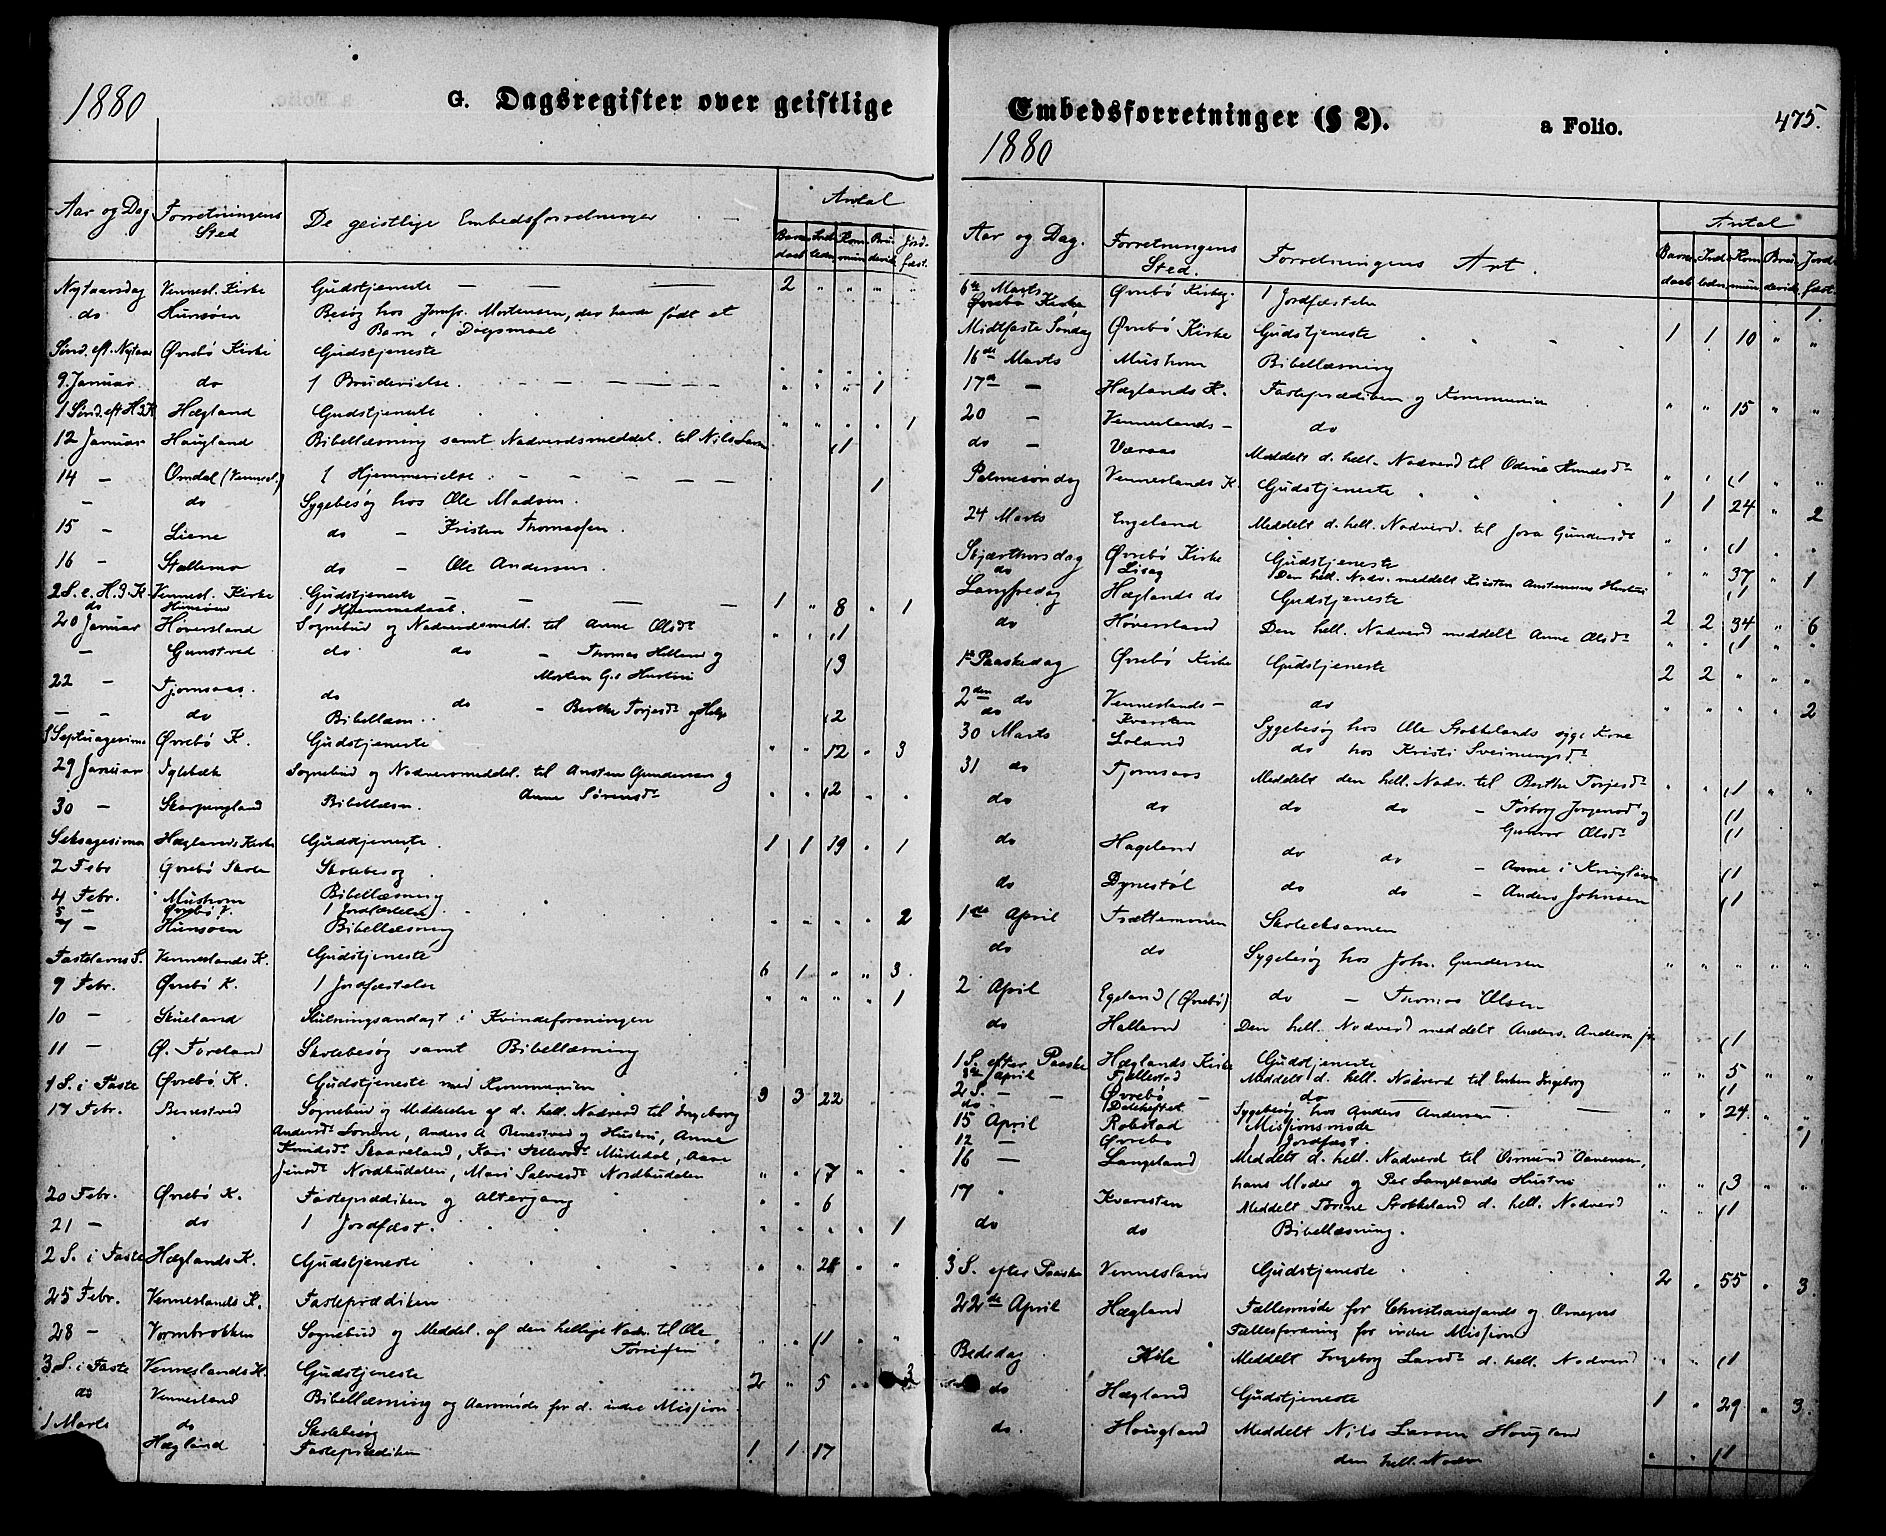 1880
G. Dagsregister over geistlige
Aar og Dag Forretningens Sted De geistlige Embedsforretninger Antal
Barnedaab Indleden Kommun Brudevih Jordfæst.
Nytaarsdag Vennesl. Kirke Gudstjeneste — — — 2 " " "
do Hunsøen Besøg hos Jomfr. Mortensen, der havde født et
Barn i Dagsmaal
Sønd. eft. Nytaar Øvrebø Kirke Gudstjeneste
9 Januar do 1 Brudevielse. " " " 1
1 Sønd. eft H3K Hægland Gudstjeneste " " " . 1
12 Januar Haugland Bibellæsning samt Nadverdsmeddel. til Nils Larsen (1
14 — Omdal (Vennesl.) 1 Hjemmevielse. — — — 1
— do Sygebesøg hos Ole Madsen.
15 — Liene do — Kristen Thomassen.
16 — Stallemo do — Ole Andersen.
2 S. e. H. 3 K. Vennesl. Kirke Gudstjeneste — — — 1 " 8 " 1
do Hunsøen 1 Hjemmedaab.
20 Januar Høversland Sognebud og Nadverdsmedd. til Anne Olsdt " . (1
— Gunstved do do — Thomas Helland og (3
Morten G.s Hustru
22 — Fjomsaas. do do — Berthe Torjesdt og (2
— — do Bibellæsn.
Septuagesima Øvrebø K. Gudstjeneste " " 12 " 3
29 Januar Iglebæk Sognebud og Nadversmeddel. til Austen Gundersen og
Anne Sørensdt " " (2 " .
30 — Skarpengland Bibellæsn.
Seksagesima Hæglands Kirke Gudstjeneste. 1 1 19 . 1
2 Febr Øvrebø Skole Skolebesøg
4 Febr. Mushom Bibellæsning
5 — Øvrebø K. 1 Jordfæstelse. " " " " 2
7 — Hunsøen Bibellæsning
Fastelavns S. Venneslands K. Gudstjeneste 6 1 " " 3.
9 Febr. Øvrebø K. 1 Jordfæstelse " " " " 1
10 — Skueland Slutningsandagt i Kvindeforeningen
11 — Ø. Føreland Skolebesøg samt Bibellæsning
1 S. i Faste Øvrebø K. Gudstjeneste med Kommunion 3 3 22 .
17 Febr. Benestved Sognebud og Meddelelse af d. hell. Nadverd til Ingeborg
Andersdt , Anders A Benestved og Hustru, Anne
Knudsdt Skaarsland, Kari , Aase
Jensdt Nordbudalen, Mari Salvesdt Nordbudalen " " (7 . .
20 Febr. Øvrebø K. Fasteprædiken og Altergang " " 6
21 — do 1 Jordfæst. " " " . 1
2 S. i Faste Hæglands K. Gudstjeneste " " 28 " "
25 Febr. Venneslands K. Fasteprædiken
28 — Vormbrokken Sognebud og Meddel. af den hellige Nadv. til Ole " . (1 . "
Torrisen
3 S. i Faste Venneslands K. Gudstjeneste 2 " 5 " 2
do Vennesland Bibellæsning og Aarsmøde for d. indre Mission.
1 Marts do Skolebesøg
Hægland Fasteprædiken 1 1 17
Embedsforretninger (§ 2).
a Folio.
475.
1880
Aar og Dag. Forretningens Sted. Forretningens Art. Antal
Barnedaab Indleden Kommun Brudevih Jordfæst
6te Marts Øvrebø Kirkeg. 1 Jordfæstelse 1.
Øvrebø Kirke
Midtfaste Søndag Øvrebø Kirke Gudstjeneste 1 1 10 " "
16de Marts Mushom Bibellæsning
17de — Hæglands K. Fasteprædiken og Kommunion " " 15 " "
20 — Venneslands — do
do — Væraas Meddelt d. hell. Nadverd til Odine Knudsdt " . (1 " "
Palmesøndag Venneslands K. Gudstjeneste 1 1 24 " 2
24 Marts Engeland Meddelt d. hell. Nadverd. til Jora Gundersdt " " (1 . "
Skjærthorsdag Øvrebø Kirke Gudstjeneste " " 37 " 1
do Den hell. Nadv. meddelt Kristen Hustru (1
Langfredag Hæglands do Gudstjeneste 2 2 34 " 6
do Høversland Den hell. Nadverd meddelt Anne Olsdt " " (1 " "
1ste Paaskedag Øvrebø Kirke Gudstjeneste 2 2 " " "
2den do Venneslands — do " " " " 2
do Kvarsten Sygebesøg hos Ole Stokkelands syge Kone
30 Marts Loland do hos Kristi Sveinungsdt
31 do Fjomsaas Meddelt den hell. Nadv. til Berthe Torjesdt " . (1 " "
do do do do — Torborg Jørgensdt og (1
Gunvor Olsdt (1
do Hageland do do — Anne i (1
do Dynestøl do do — Anders Johnsen (1
1ste April Trættemmen Skoleeksamen
do do Sygebesøg hos John Gundersen " " " " "
2 April Egeland (Øvrebø) do — Thomas Olsen
do Halland Den hell. Nadverd meddelt Anders Andersen (1
1 S. efter Paaske Hæglands Kirke Gudstjeneste . " 5 " "
April Fællestad Meddelt d. hell. Nadverd til Enken Ingeborg (1
2 S. — — Øvrebø — do " " 24 " "
do Sygebesøg hos Anders Andersen — —
15 April Robstad Missionsmøde
12 — Øvrebø 1 Jordfæst. 1
16 — Langeland Meddelt d. hell. Nadverd til Osmund Aanensen,
hans Moder og Per Langelands Hustru " " (3 " "
17 " Kvarsten Meddelt Torine Stokkeland d. hell. Nadverd " . (1
do do Bibellæsning.
3 S. efter Paaske Vennesland Gudstjeneste 2 " 55 " 3.
22de April Hægland Fællesmøde for Christianssands og Omegns
Fællesforening for indre Mission
Bededag Kile Meddelt Ingeborg Larsdt d. hell. Nadverd " . (1
do Hægland Gudstjeneste 1 " 29 " 3.
do. Hougland Meddelt Nils Larsen Hougland
den hell. Nadv " " (1